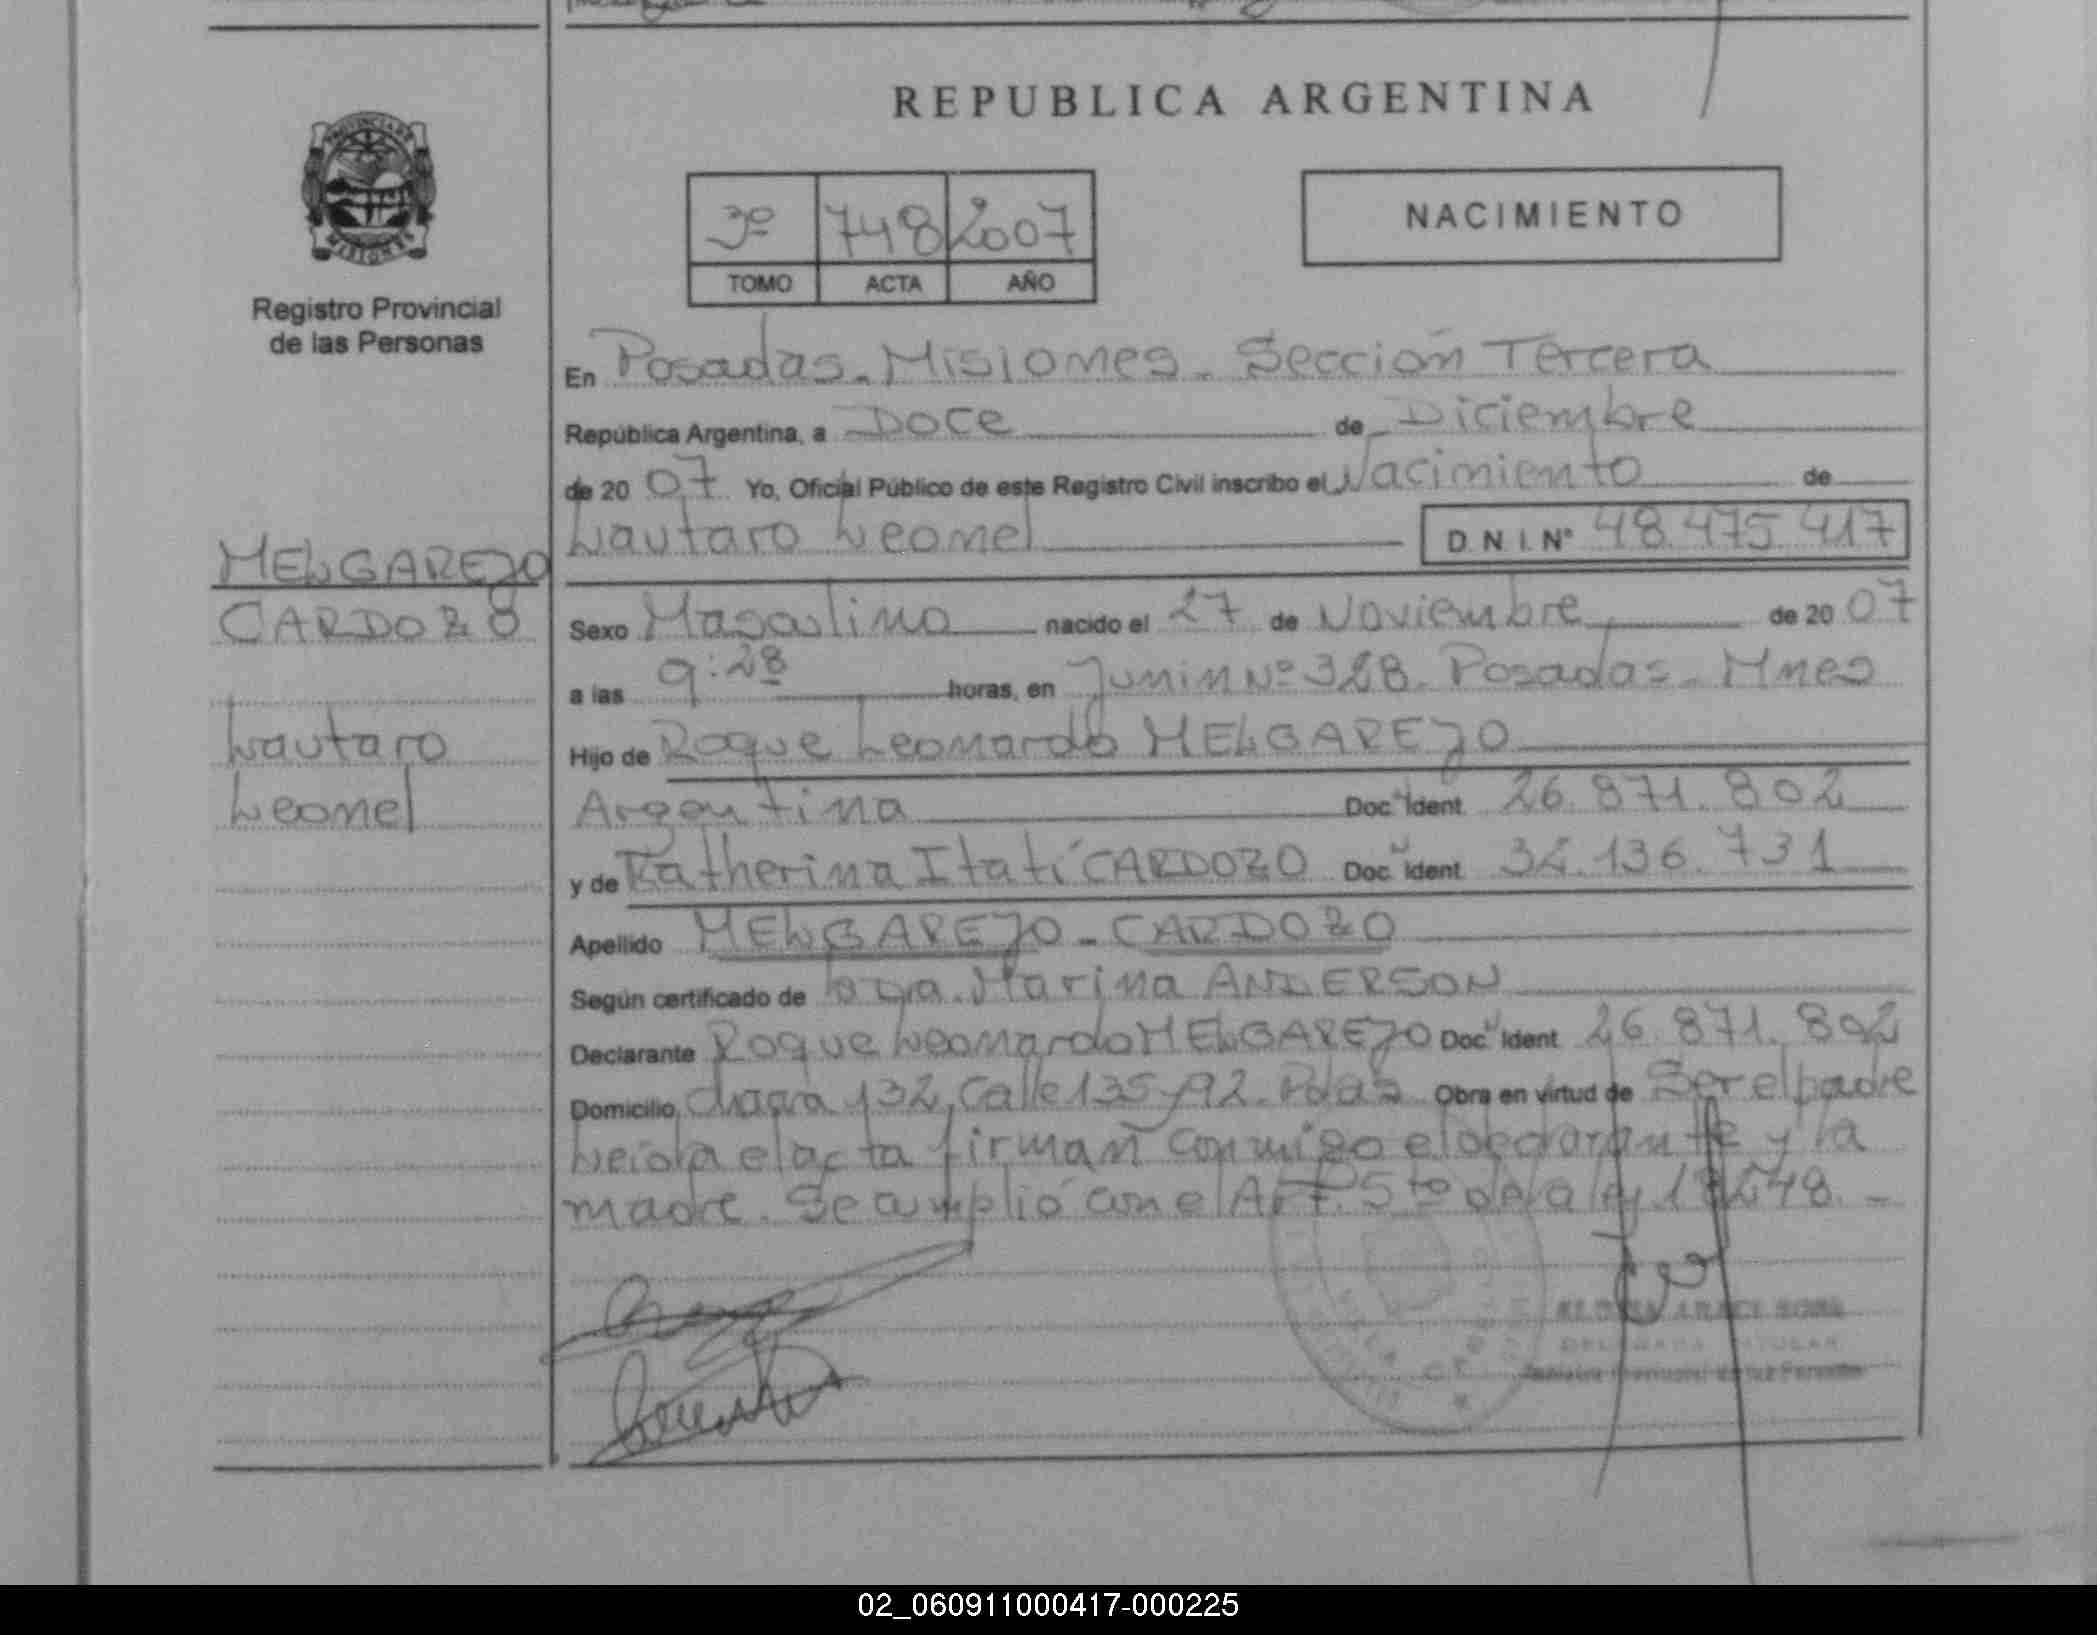 REPUBLICA ARGENTINA
PROVINCIA DE
MISIONES
Registro Provincial
de las Personas
3º 748 2007
TOMO ACTA AÑO
NACIMIENTO
En Posadas - Misiones - Sección Tercera
República Argentina, a Doce de Diciembre
de 20 07 Yo, Oficial Público de este Registro Civil inscribo el Nacimiento de
Lautaro Leonel D.N.I. Nº 48.475.417
MELGAREJO
CARDOZO
Lautaro
Leonel
Sexo Masculino nacido el 27 de Noviembre de 20 07
a las 9:28 horas, en Junin Nº 328. Posadas - Mnes
Hijo de Roque Leonardo MELGAREJO
Argentina Doc. Ident. 26.871.802
y de Katherina Itatí CARDOZO Doc. Ident. 34.136.731
Apellido MELGAREJO - CARDOZO
Según certificado de Marina ANDERSON
Declarante Roque Leonardo MELGAREJO Doc. Ident. 26.871.802
Domicilio Chacra 132, Calle 135 y 92. Pdas Obra en virtud de Ser el padre
Leída el acta firman conmigo el declarante y la
madre. Se cumplió con el Art. 5to de la ley 18248. -
02_060911000417-000225